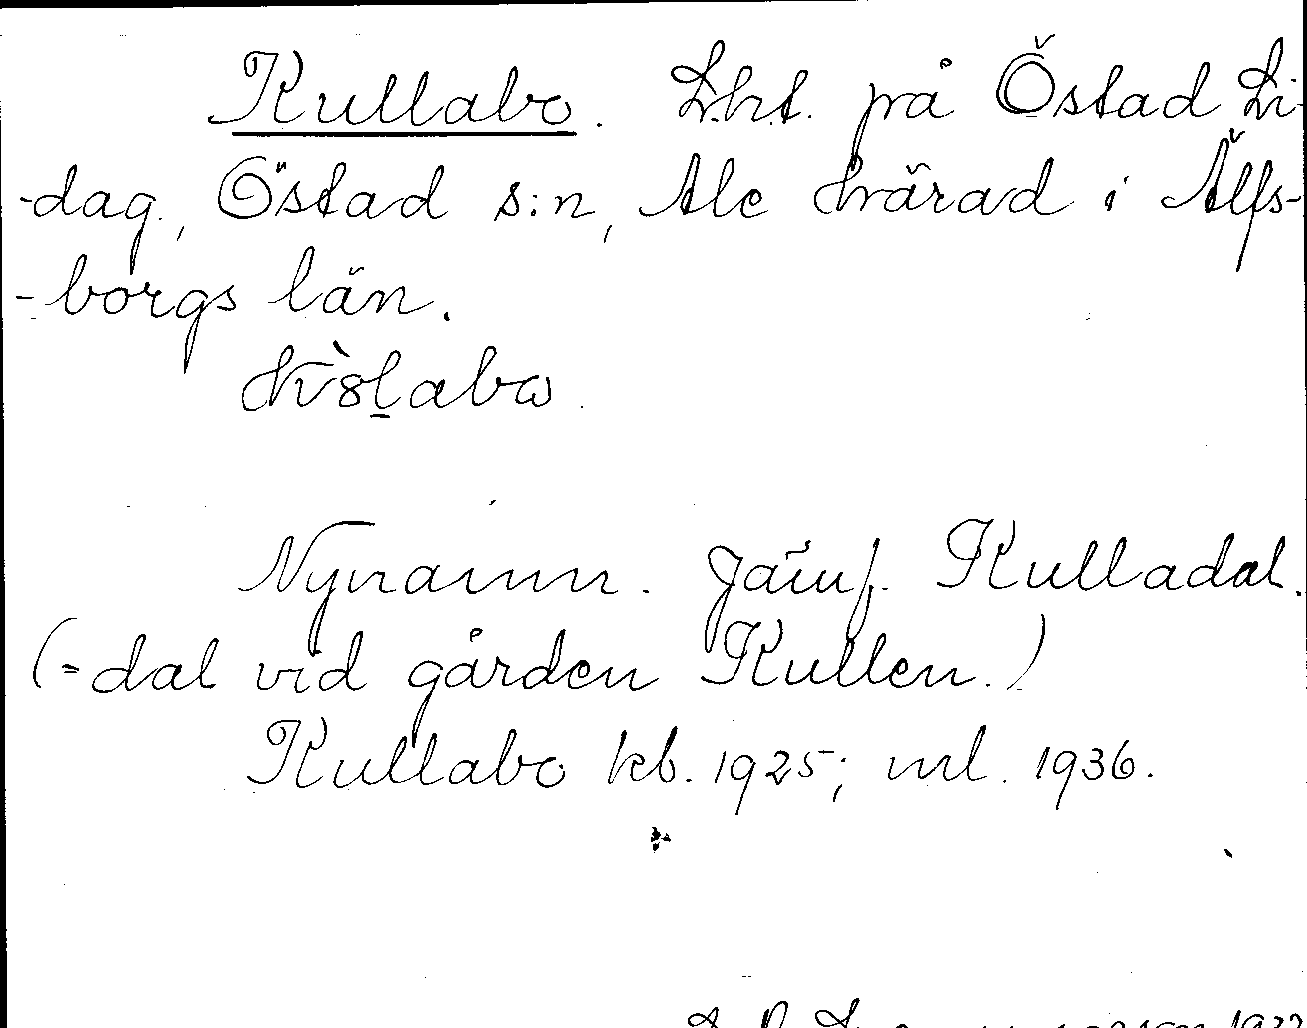 Kullabo. Lht. på Östad Li-
-dag., Östad s:n, Ale härad i Älfs-
-borgs län.
Nynamn. Jämf. Kulladal.
(=dal vid gården Kullen.)
Kullabo kb. 1925; ml. 1936.